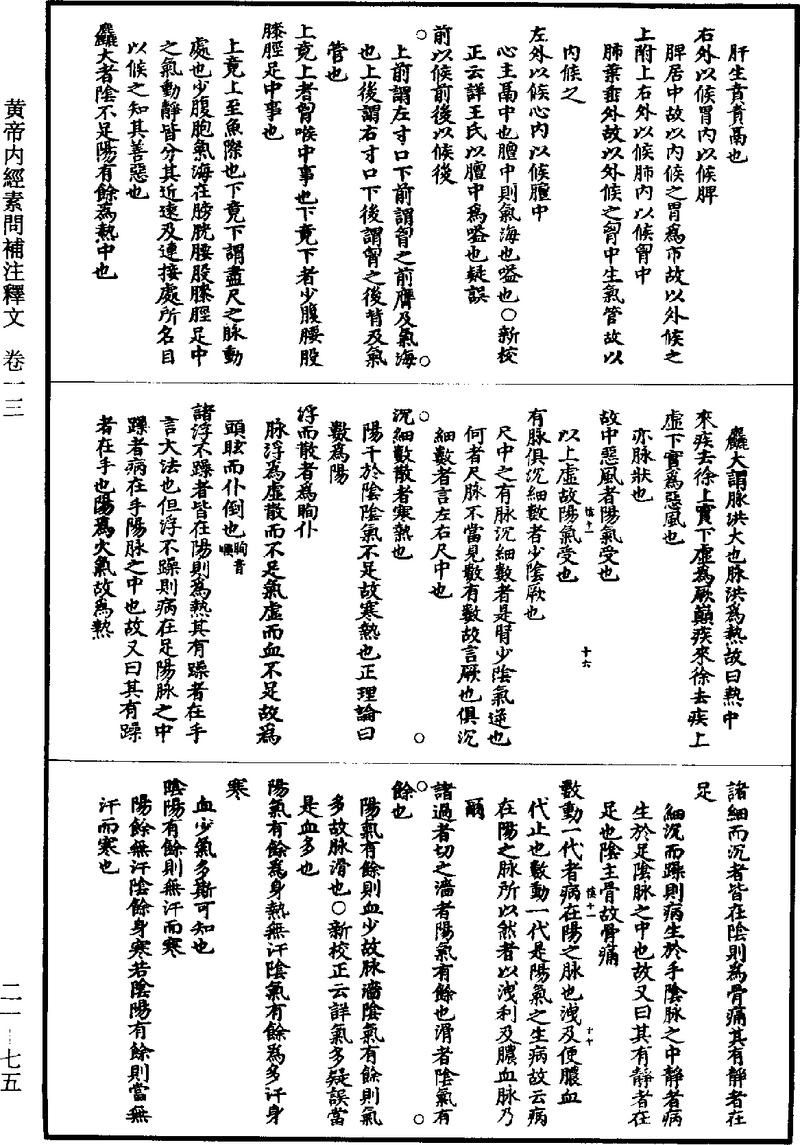 黄帝内經素問補注釋文　卷一三
二一—七五
肝生賁賁鬲也
右外以候胃内以候脾
脾居中故以内候之胃爲市故以外候之
上附上右外以候肺内以候胷中
肺葉垂外故以外候之胷中主氣管故以
内候之
左外以候心内以候膻中
心主鬲中也膻中則氣海也嗌也○新校
正云詳王氏以膻中爲嗌也疑誤
前以候前後以候後
上前謂左寸口下前謂胷之前膺及氣海
也上後謂右寸口下後謂胷之後背及氣
管也
上竟上者胷喉中事也下竟下者少腹腰股
膝脛足中事也
上竟上至魚際也下竟下謂盡尺之脉動
處也少腹胞氣海在膀胱腰股膝脛足中
之氣動靜皆分其近遠及連接處所名目
以候之知其善惡也
麤大者陰不足陽有餘爲熱中也
麤大謂脉洪大也脉洪爲熱故曰熱中
來疾去徐上實下虛爲厥巔疾來徐去疾上
虛下實爲惡風也
亦脉狀也
故中惡風者陽氣受也
以上虛故陽氣受也
有脉俱沉細數者少陰厥也
尺中之有脉沉細數者是腎少陰氣逆也
何者尺脉不當見數有數故言厥也俱沉
細數者言左右尺中也
沉細數散者寒熱也
陽干於陰陰氣不足故寒熱也正理論曰
數爲陽
浮而散者爲眴仆
脉浮爲虛散而不足氣虛而血不足故爲
頭眩而仆倒也
諸浮不躁者皆在陽則爲熱其有躁者在手
言大法也但浮不躁則病在足陽脉之中
躁者病在手陽脉之中也故又曰其有躁
者在手也陽爲火氣故爲熱
諸細而沉者皆在陰則爲骨痛其有靜者在
足
細沉而躁則病生於手陰脉之中靜者病
生於足陰脉之中也故又曰其有靜者在
足也陰主骨故骨痛
數動一代者病在陽之脉也洩及便膿血
代止也數動一代是陽氣之生病故云病
在陽之脉所以然者以洩利及膿血脉乃
爾
諸過者切之濇者陽氣有餘也滑者陰氣有
餘也
陽氣有餘則血少故脉濇陰氣有餘則氣
多故脉滑也○新校正云詳氣多疑誤當
是血多也
陽氣有餘爲身熱無汗陰氣有餘爲多汗身
寒
血少氣多斯可知也
陰陽有餘則無汗而寒
陽餘無汗陰餘身寒若陰陽有餘則當無
汗而寒也